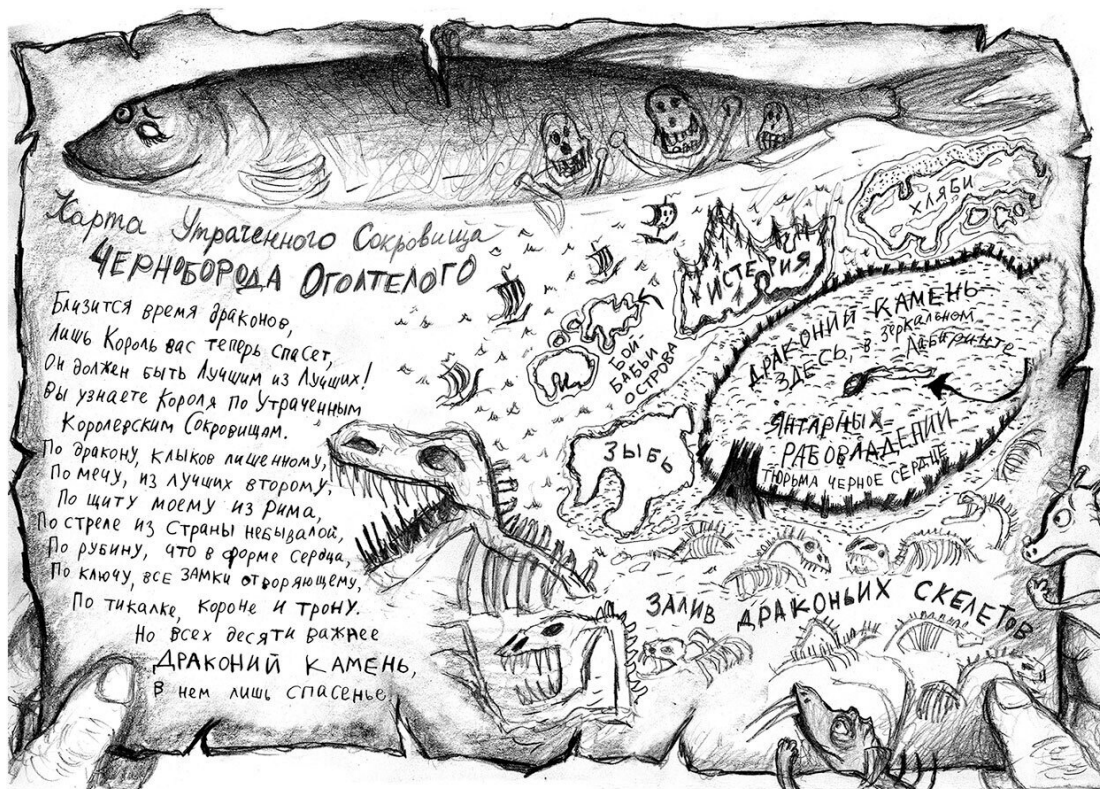 Карта Утраченного Сокровища
ЧЕРНОБОРОДА ОГОЛТЕЛОГО
Близится время драконов,
лишь Король вас теперь спасет,
Он должен быть Лучшим из Лучших!
Вы узнаете Короля по Утраченным
Королевским Сокровищам.
По дракону, клыков лишенному,
По мечу, из лучших второму,
По щиту моему из Рима,
По стреле из Страны небывалой,
По рубину, что в форме сердца,
По ключу, все замки отворяющему,
По тикалке, короне и трону.
Но всех десяти важнее
ДРАКОНИЙ КАМЕНЬ,
В нем лишь спасенье
ХЛЯБИ
ИСТЕРИЯ
БОЙ
БАБЬИ
ОСТРОВА
ЗЫБЬ
ДРАКОНИЙ КАМЕНЬ
ЗДЕСЬ, в зеркальном
Лабиринте
ЯНТАРНЫХ
РАБОВЛАДЕНИЙ
ТЮРЬМА ЧЕРНОЕ СЕРДЦЕ
ЗАЛИВ ДРАКОНЬИХ СКЕЛЕТОВ